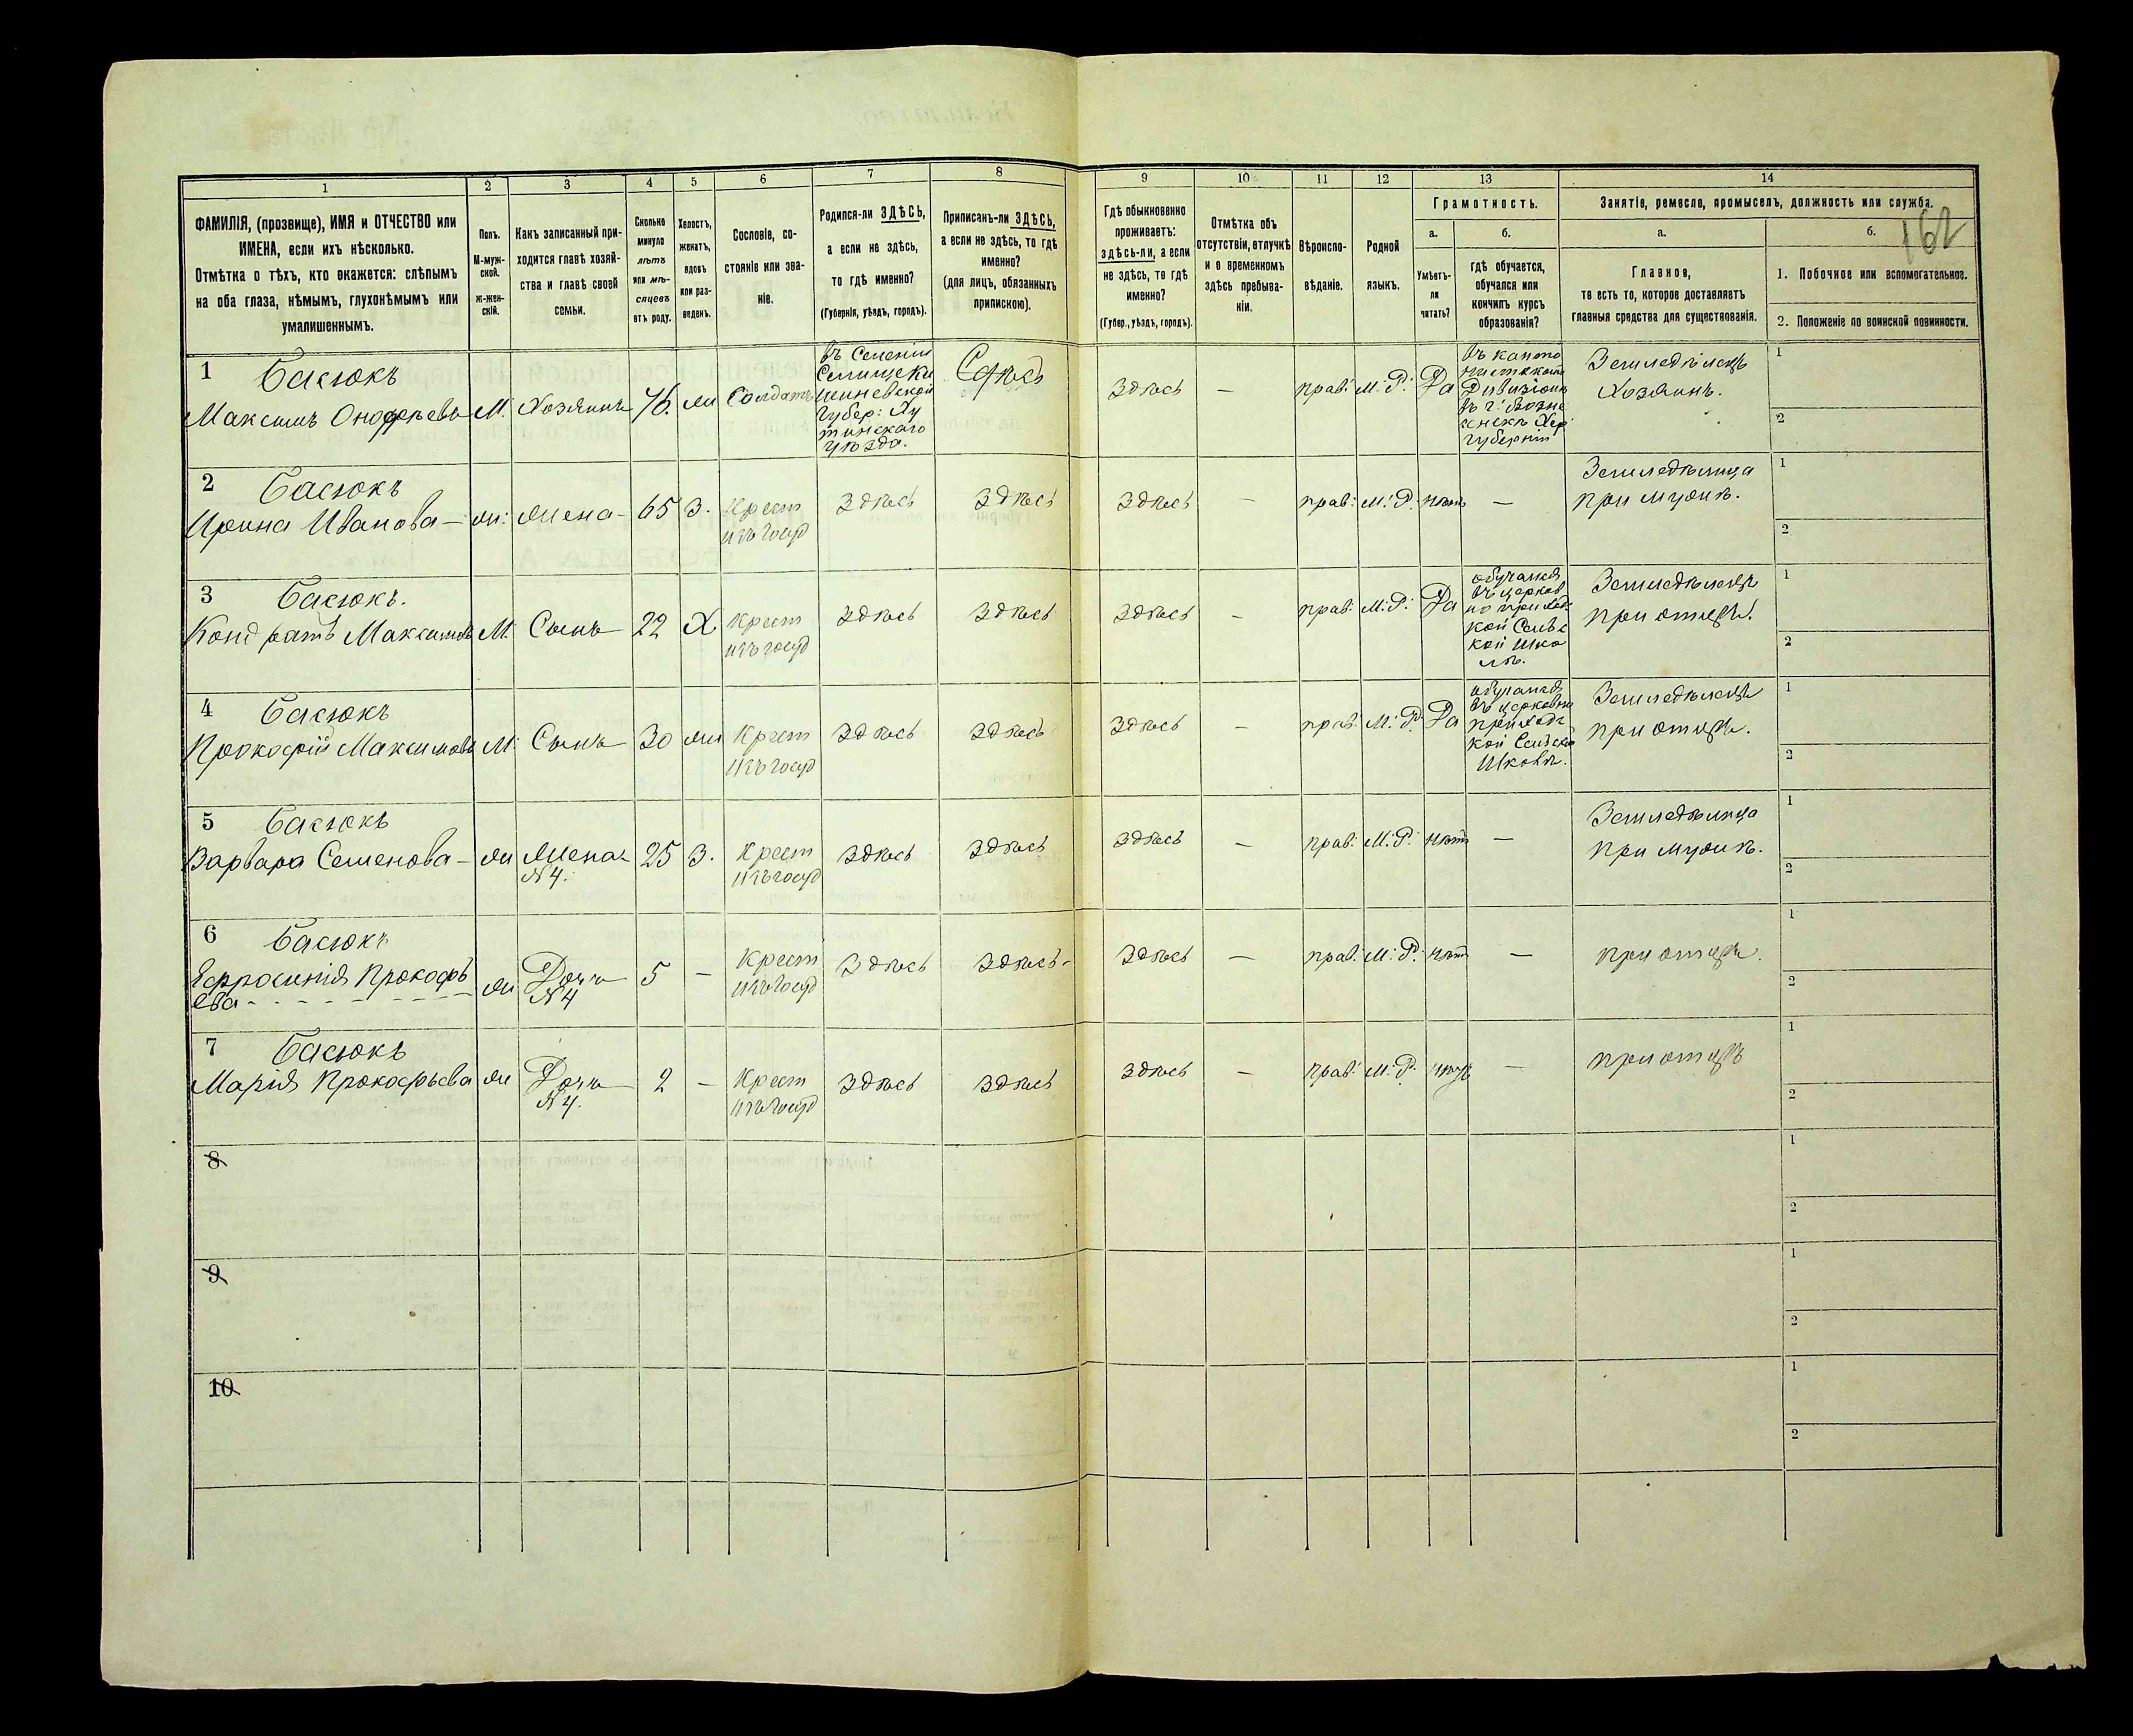 162
1 2 3 4 5 6 7 8 9 10 11 12 13 14
ФАМИЛІЯ, (прозвище), ИМЯ и ОТЧЕСТВО или
ИМЕНА, если ихъ нѣсколько.
Отмѣтка о тѣхъ, кто окажется: слѣпымъ
на оба глаза, нѣмымъ, глухонѣмымъ или
умалишеннымъ.
Полъ.
М-муж-
ской.
ж-жен-
скій.
Какъ записанный при-
ходится главѣ хозяй-
ства и главѣ своей
семьи.
Сколько
минуло
лѣтъ
или мѣ-
сяцевъ
отъ роду.
Холостъ,
женатъ,
вдовъ
или раз-
веденъ.
Сословіе, со-
стояніе или зва-
ніе.
Родился-ли ЗДѢСЬ,
а если не здѣсь,
то гдѣ именно?
(Губернія, уѣздъ, городъ).
Приписанъ-ли ЗДѢСЬ,
а если не здѣсь, то гдѣ
именно?
(для лицъ, обязанныхъ
припискою).
Гдѣ обыкновенно
проживаетъ:
здѣсь-ли, а если
не здѣсь, то гдѣ
именно?
(Губер., уѣздъ, городъ).
Отмѣтка объ
отсутствіи, отлучкѣ
и о временномъ
здѣсь пребыва-
ніи.
Вѣроиспо-
вѣданіе.
Родной
языкъ.
Грамотность.
а.
Умѣетъ-
ли
читать?
б.
гдѣ обучается,
обучался или
кончилъ курсъ
образованія?
Занятіе, ремесло, промыселъ, должность или служба.
а.
Главное,
то есть то, которое доставляетъ
главныя средства для существованія.
б.
1. Побочное или вспомогательное.
2. Положеніе по воинской повинности.
1 Басюкъ
Максимъ Онофрьевъ М. Хозяинъ 76. жи Солдатъ
въ Селеніи
губер: Ху
тинскаго
уѣзда.
Здѣсь Здѣсь — прав: М: Р: Да
въ канто
Дивизіонѣ
въ г: Возне
сенскѣ Хер
губерніи
Земледѣлецъ
Хозяинъ.
1
2
2 Басюкъ
Ирина Иванова — жи: жена — 65 З. Крест
изъ госуд
Здѣсь Здѣсь Здѣсь — прав: М: Р: нѣтъ —
Земледѣлица
при мужѣ.
1
2
3 Басюкъ.
Кондратъ Максимовъ М. Сынъ 22 Х Крест
изъ госуд
Здѣсь Здѣсь Здѣсь — прав: М: Р: Да
обучался
въ церков
но приход
кой Сельс
кой шко
лѣ.
Земледѣлецъ
при отцѣ.
1
2
4 Басюкъ
Прокофій Максимовъ М. Сынъ 30 жи Крест
изъ госуд
Здѣсь Здѣсь Здѣсь — прав: М: Р. Да
обучался
въ церковно
приходс
кой Сельско
Школѣ.
Земледѣлецъ
при отцѣ.
1
2
5 Басюкъ
Варвара Семенова — жи жена
№ 4.
25 З. Крест
изъ госуд
Здѣсь Здѣсь Здѣсь — прав: М: Р: нѣтъ —
Земледѣлица
при мужѣ.
1
2
6 Басюкъ
Ефросинія Прокофь
ева
жи Дочь
№ 4
5 — Крест
изъ госуд
Здѣсь Здѣсь Здѣсь — прав: М: Р: нѣтъ —
при отцѣ.
1
2
7 Басюкъ
Марія Прокофьева жи Дочь
№ 4.
2 — Крест
изъ госуд
Здѣсь Здѣсь Здѣсь — прав: М: Р. нѣтъ —
при отцѣ
1
2
8
1
2
9
1
2
10
1
2